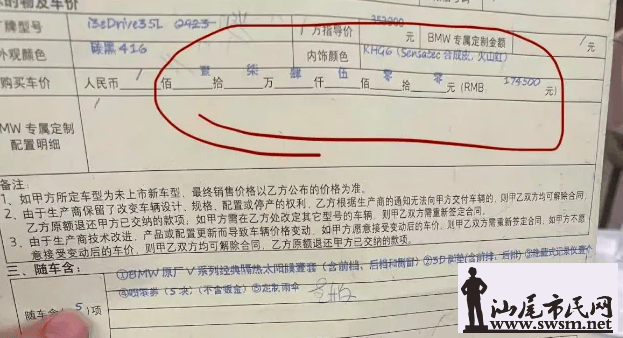 的物及车价
厂牌型号 i3eDrive35L 厂方指导价 353900 元 BMW 专属定制金额 / 元
外观颜色 碳黑416 内饰颜色 KHG6 (Sensatec 合成皮, 火山红)
购买车价 人民币 / 佰 壹 拾 柒 万 肆 仟 伍 佰 零 拾 零 元 (RMB: 174500 元)
MW 专属定制
配置明细
备注:
1、如甲方所定车型为未上市新车型, 最终销售价格以乙方公布的价格为准。
2、由于生产商保留了改变车辆设计、规格、配置或停产的权利, 乙方根据生产商的通知无法向甲方交付车辆的, 则甲乙双方均可解除合同,
乙方原额退还甲方已交纳的款项; 如甲方需在乙方处改定其它型号的车辆, 则甲乙双方需重新签定合同。
3、由于生产商技术改进、产品或配置更新而导致车辆价格变动, 如甲方愿意接受变动后的车价, 则甲乙双方需重新签定合同, 如甲方不愿
意接受变动后的车价, 则甲乙双方均可解除合同, 乙方原额退还甲方已交纳的款项。
三、随车含:
①BMW原厂V系列经典隔热太阳膜壹套(含前挡、后挡和侧窗)
随车含(5)项
(5次)(不含钣金)⑤定制雨伞
汕尾市民网
www.swsm.net